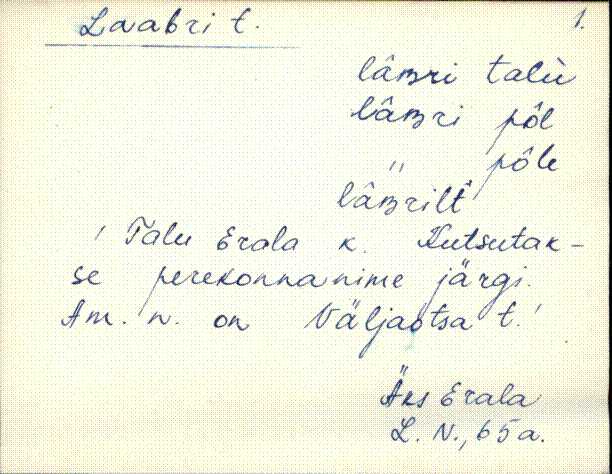 Laabri t.
1.
lâʙri talù
lâʙri pôl
" pôle
lâʙrilt
! Talu Erala k. Kutsutak-
se perekonnanime järgi.
Am. n. on Väljaotsa t.!
Äks Erala
L. N., 65 a.